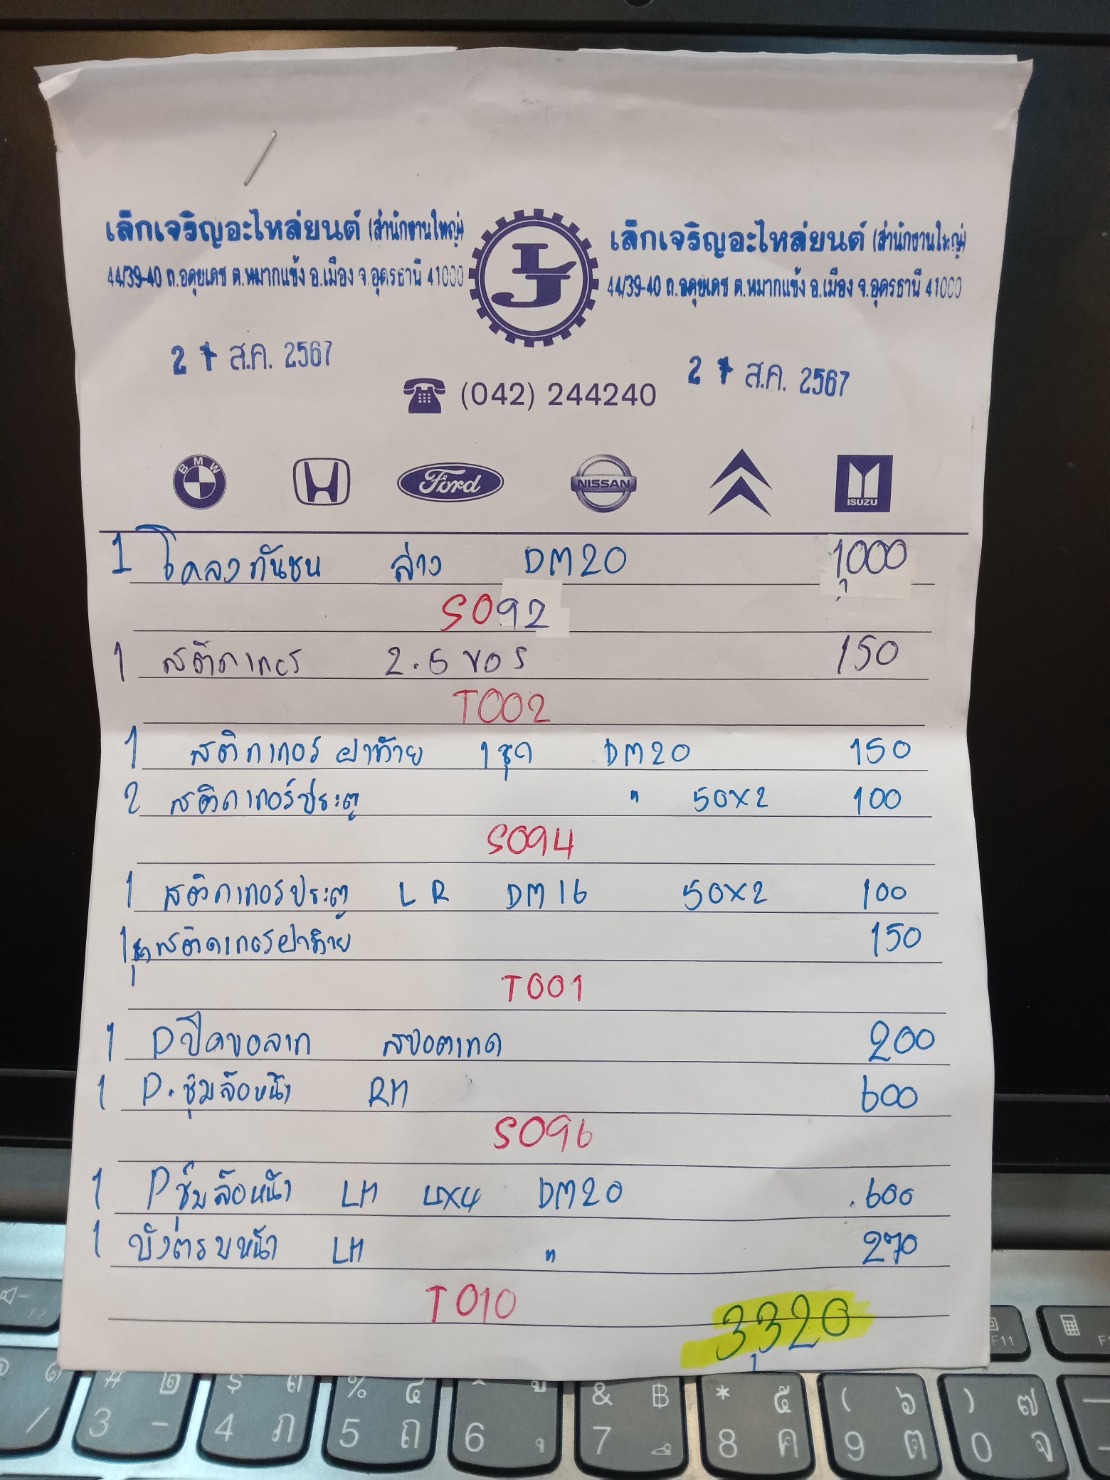 เล็กเจริญอะไหล่ยนต์ (สำนักงานใหญ่)
44/39-40 ถ.อดุยเดช ต.หมากแข้ง อ.เมือง จ.อุดรธานี 41000
2 7 ส.ค. 2567
LJ
เล็กเจริญอะไหล่ยนต์ (สำนักงานใหญ่)
44/39-40 ถ.อดุยเดช ต.หมากแข้ง อ.เมือง จ.อุดรธานี 41000
2 7 ส.ค. 2567
(042) 244240
BMW
Ford
NISSAN
ISUZU
1 โคลงกันชน ล่าง DM20 1,000
S092
1 สติกเกอร์ 2.5 ขอร 150
T002
1 สติกเกอร์ฝาท้าย 1ชุด DM20 150
2 สติกเกอร์ประตู " 50x2 100
S094
1 สติกเกอร์ประตู L R DM16 50x2 100
1ชุด สติกเกอร์ฝาท้าย 150
T001
1 Pปิดขอลาก สปอตเทค 200
1 P.ซุ้มล้อหน้า RH 600
S096
1 Pซุ้มล้อหน้า LH 4x4 DM20 .600
1 บังตรบหน้า LH " 270
T010
3,320
F2
F11
# ๒ 3 -
$ ๓ 4 ภ
% ๔ 5 ถ
6
& ฿ 7
* ๕ 8 ค
( ๖ 9 ต
) ๗ 0 จ